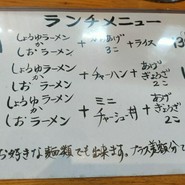 ランチメニュー
しょうゆラーメン
か
しおラーメン
+
あげ
3コ
+ライス
しょうゆラーメン
か
しおラーメン
+チャーハン+
あげ
ぎょうざ
2コ
しょうゆラーメン
か
しおラーメン
+
ミニ
チャーシュー丼
+
あげ
ぎょうざ
2コ
お好きな麺類でも出来ます。プラス差額分で